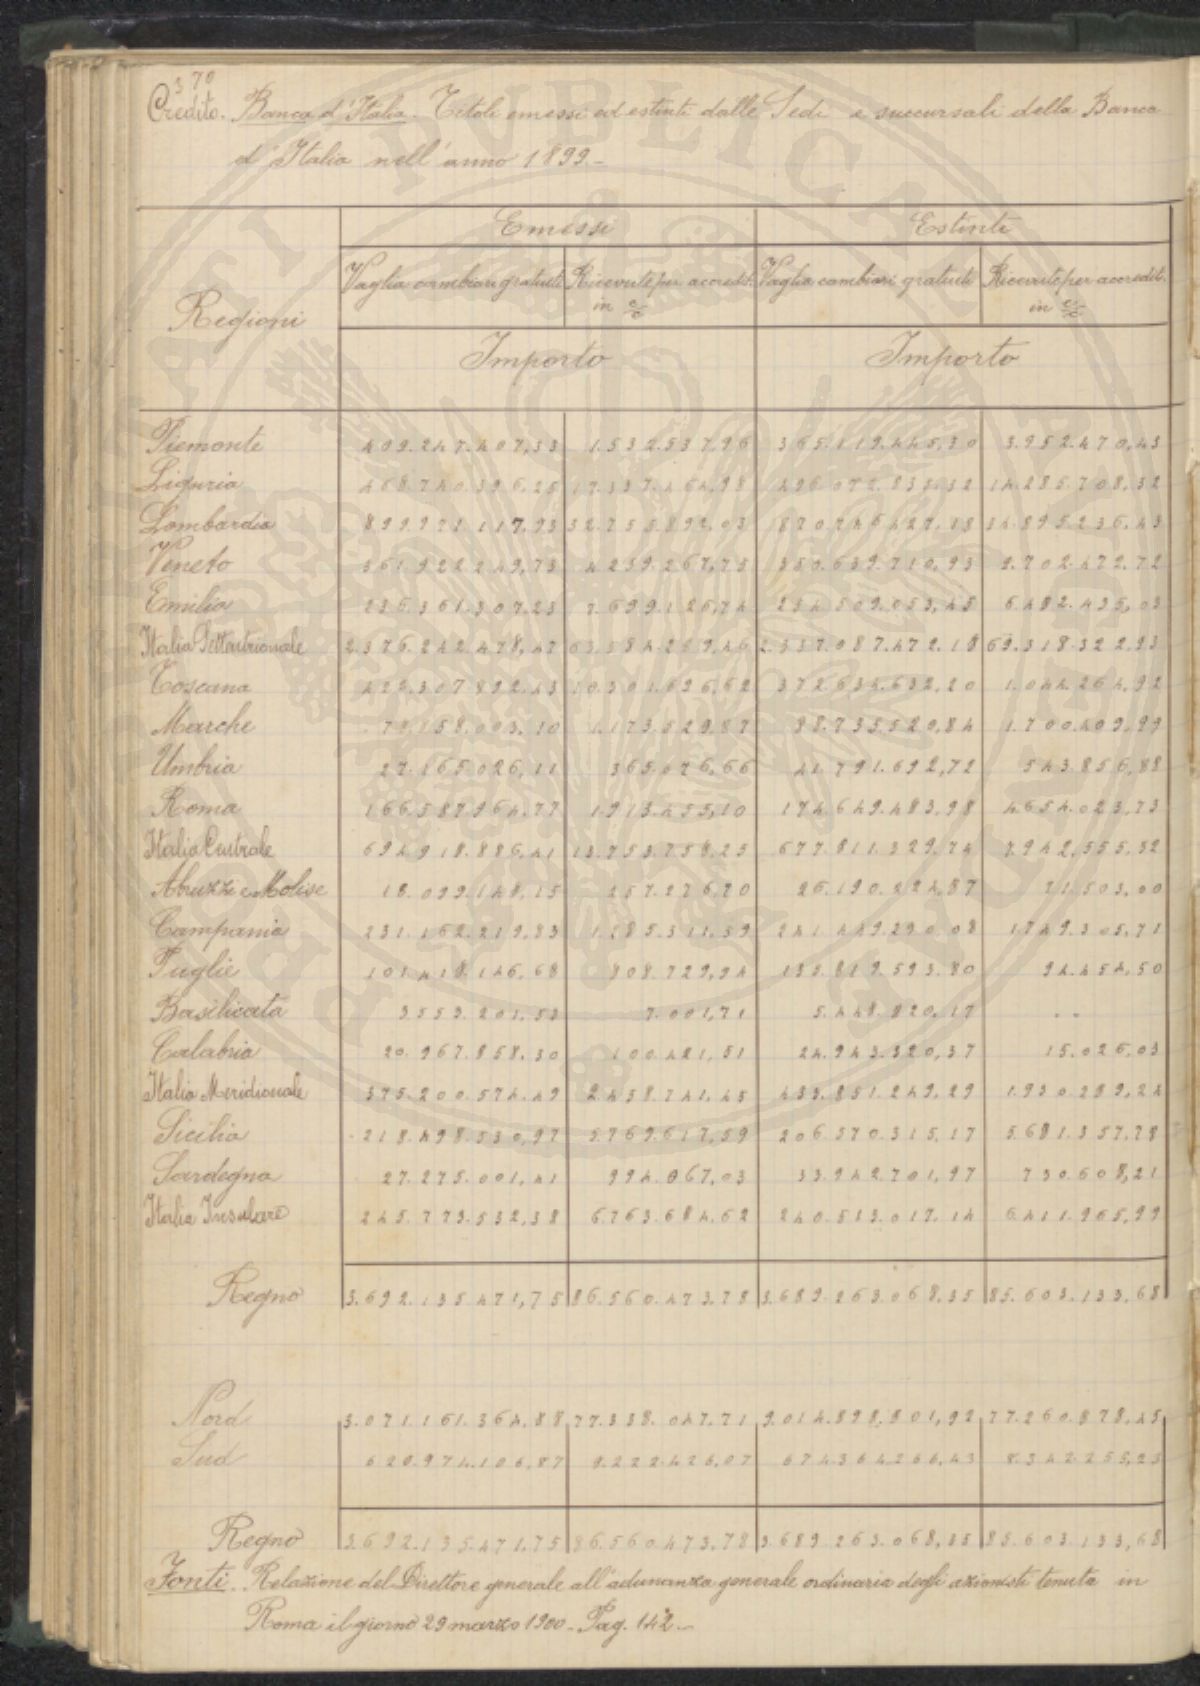 370
Credito. Banca d'Italia. Titoli emessi ed estinti dalle Sedi e succursali della Banca
d'Italia nell'anno 1899.-
Emessi Estinti
Regioni Vaglia cambiari gratuiti Ricevute per accredit. in c/c Vaglia cambiari gratuiti Ricevute per accredit. in c/c
Importo Importo
Piemonte 409.247.407,33 1.532.537,96 365.119.445,30 3.952.470,43
Liguria 468.740.396,25 17.337.464,98 496.072.835,32 14.285.708,32
Lombardia 899.971.117,93 32.755.892,03 870.746.427,18 34.895.236,43
Veneto 361.922.249,73 4.259.267,75 350.639.710,93 9.702.472,72
Emilia 236.361.307,23 7.699.126,74 254.509.053,45 6.482.435,03
Italia Settentrionale 2.376.242.478,47 63.584.289,46 2.337.087.472,18 69.318.322,93
Toscana 426.307.892,43 10.301.696,62 372.634.632,20 1.044.264,92
Marche 74.858.003,10 1.173.529,87 88.735.520,84 1.700.409,99
Umbria 27.165.026,11 365.076,66 41.791.692,72 543.856,88
Roma 166.587.964,77 1.913.455,10 174.649.483,98 4.654.023,73
Italia Centrale 694.918.886,41 13.753.758,25 677.811.329,74 7.942.555,52
Abruzzi e Molise 18.099.148,15 257.276,70 26.190.224,87 71.503,00
Campania 231.162.219,83 1.285.311,59 241.449.290,08 1.749.305,71
Puglie 101.418.146,68 808.729,94 135.819.593,80 94.454,50
Basilicata 3.553.201,53 7.001,71 5.448.820,17 . .
Calabria 20.967.858,30 100.421,51 24.943.320,37 15.026,03
Italia Meridionale 375.200.574,49 2.458.741,45 433.851.249,29 1.930.289,24
Sicilia 218.498.530,97 5.769.617,59 206.570.315,17 5.681.357,78
Sardegna 27.275.001,41 994.067,03 33.942.701,97 730.608,21
Italia Insulare 245.773.532,38 6.763.684,62 240.513.017,14 6.411.965,99
Regno 3.692.135.471,75 86.560.473,78 3.689.263.068,35 85.603.133,68
Nord 3.071.161.364,88 77.338.047,71 3.014.898.801,92 77.260.878,45
Sud 620.974.106,87 9.222.426,07 674.364.266,43 8.342.255,23
Regno 3.692.135.471,75 86.560.473,78 3.689.263.068,35 85.603.133,68
Fonti. Relazione del Direttore generale all'adunanza generale ordinaria degli azionisti tenuta in
Roma il giorno 29 marzo 1900.- Pag. 142.-